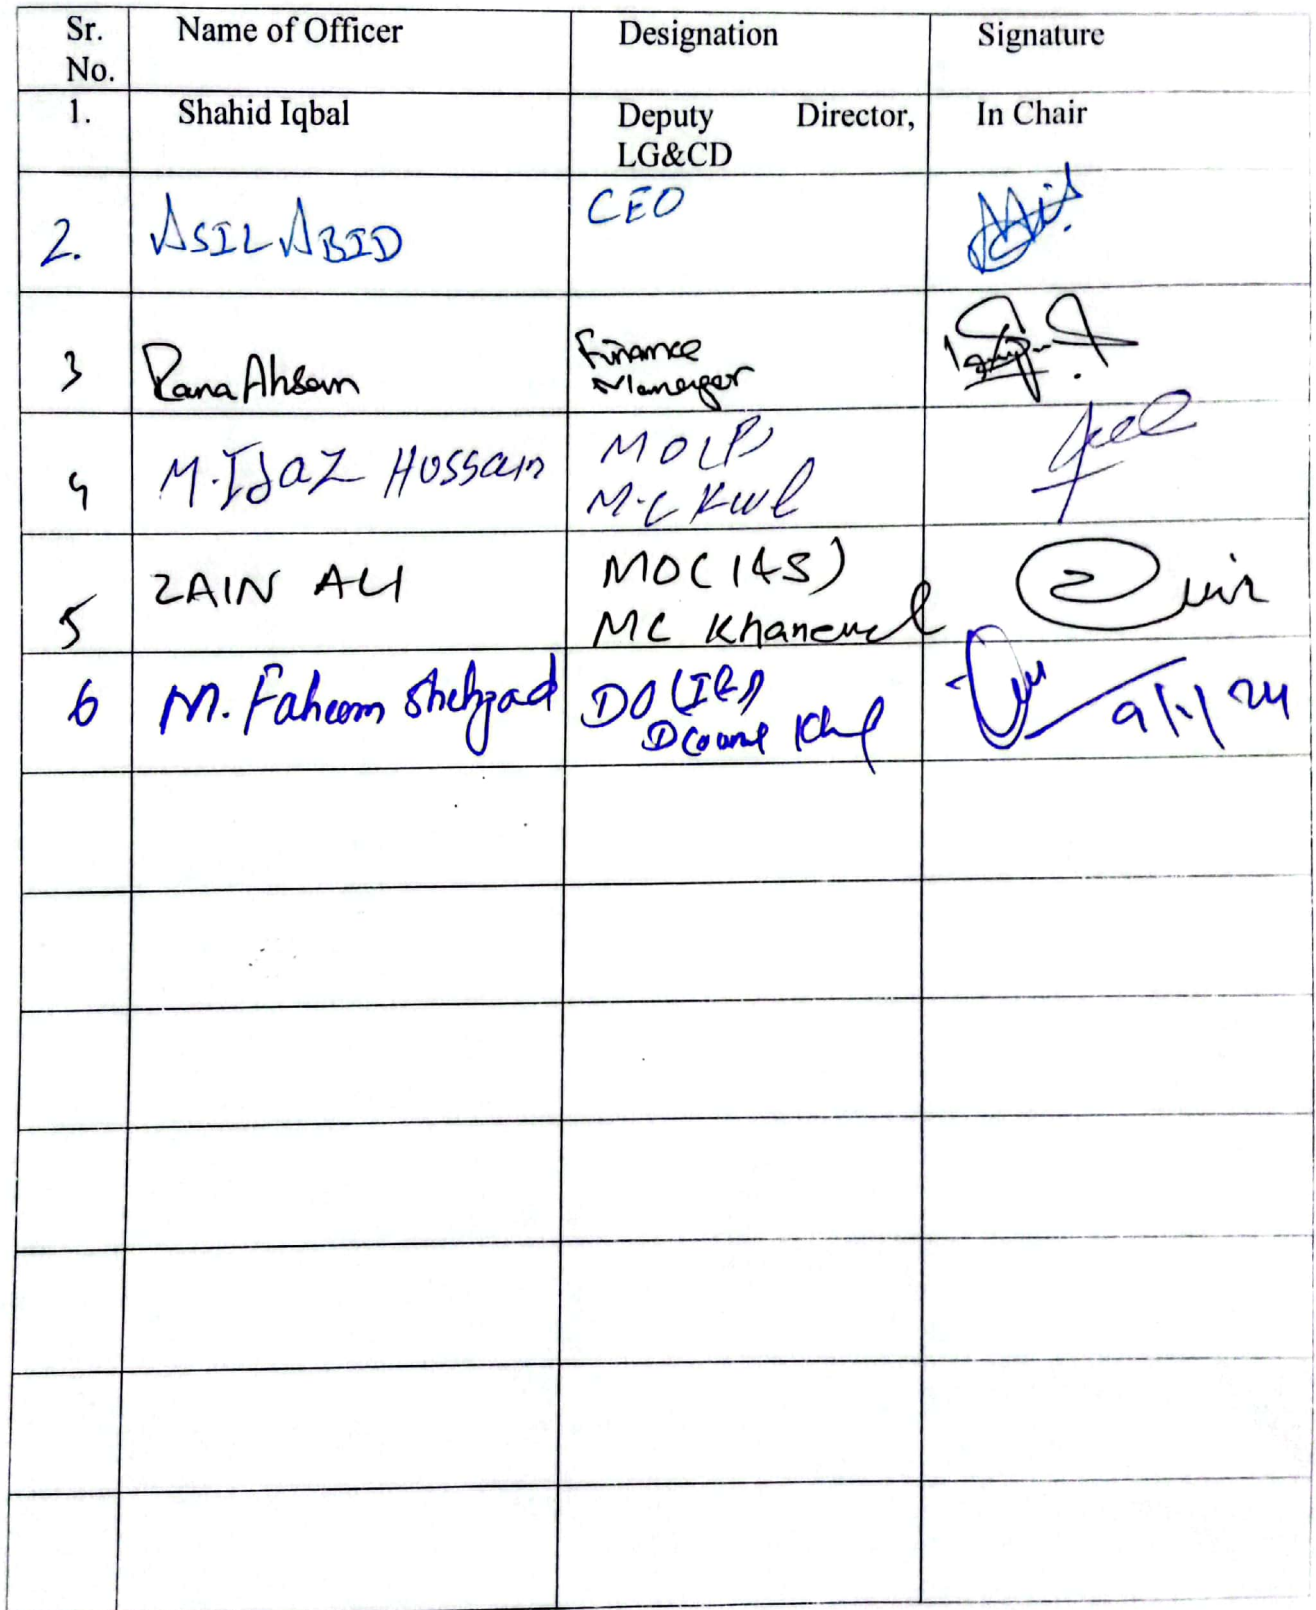 Sr. No. Name of Officer Designation Signature
1. Shahid Iqbal Deputy Director, LG&CD In Chair
2. ASIL ABID CEO
3 Rana Ahsan Finance Manager
4 M. IJaZ HUSSain MO(P) M.C Kwl
5 ZAIN ALI MO(I&S) MC Khanewal
6 M. Faheem Shehzad DO (I&S) 9/1/24